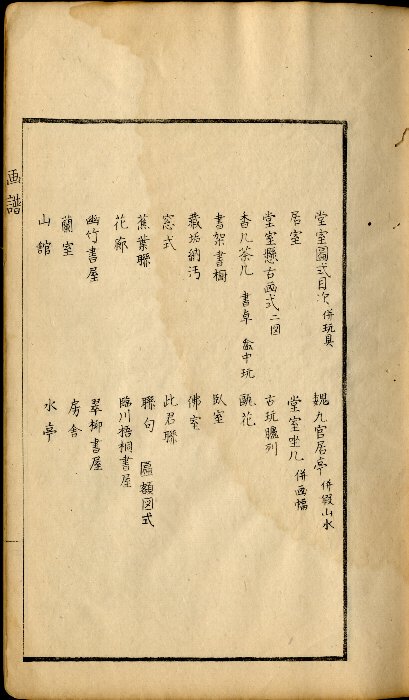 堂室圖式目次 併玩具 魏九官居亭 併假山水
居室 堂室坐几 併画幅
堂室懸古画式二図 古玩臚列
香几茶几 書卓 盆中玩 瓶花
書架書櫥 臥室
藏垢納汚 佛室
窓式 此君聯
蕉葉聯 聯句 匾額図式
花廊 臨川梧桐書屋
幽竹書屋 翠柳書屋
蘭室 房舎
山館 水亭
画譜